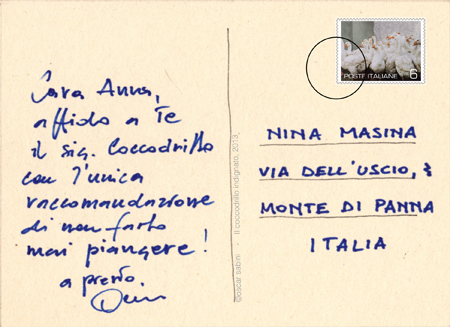 Cara Anna,
affido a Te
il sig. Coccodrillo
con l'unica
raccomandazione
di non farlo
mai piangere!
a presto.
©oscar sabini il coccodrillo indignato, 2013
POSTE ITALIANE 6
NINA MASINA
VIA DELL'USCIO,
MONTE DI PANNA
ITALIA